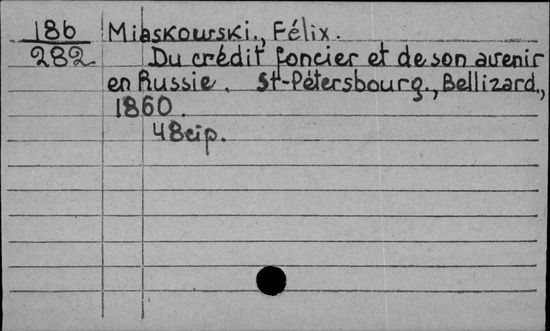 186 Miaskowski., Félix.
282 Du crédit foncier et de son avenir
en Russie. St-Pétersbourg., Bellizard.,
1860.
48cip.